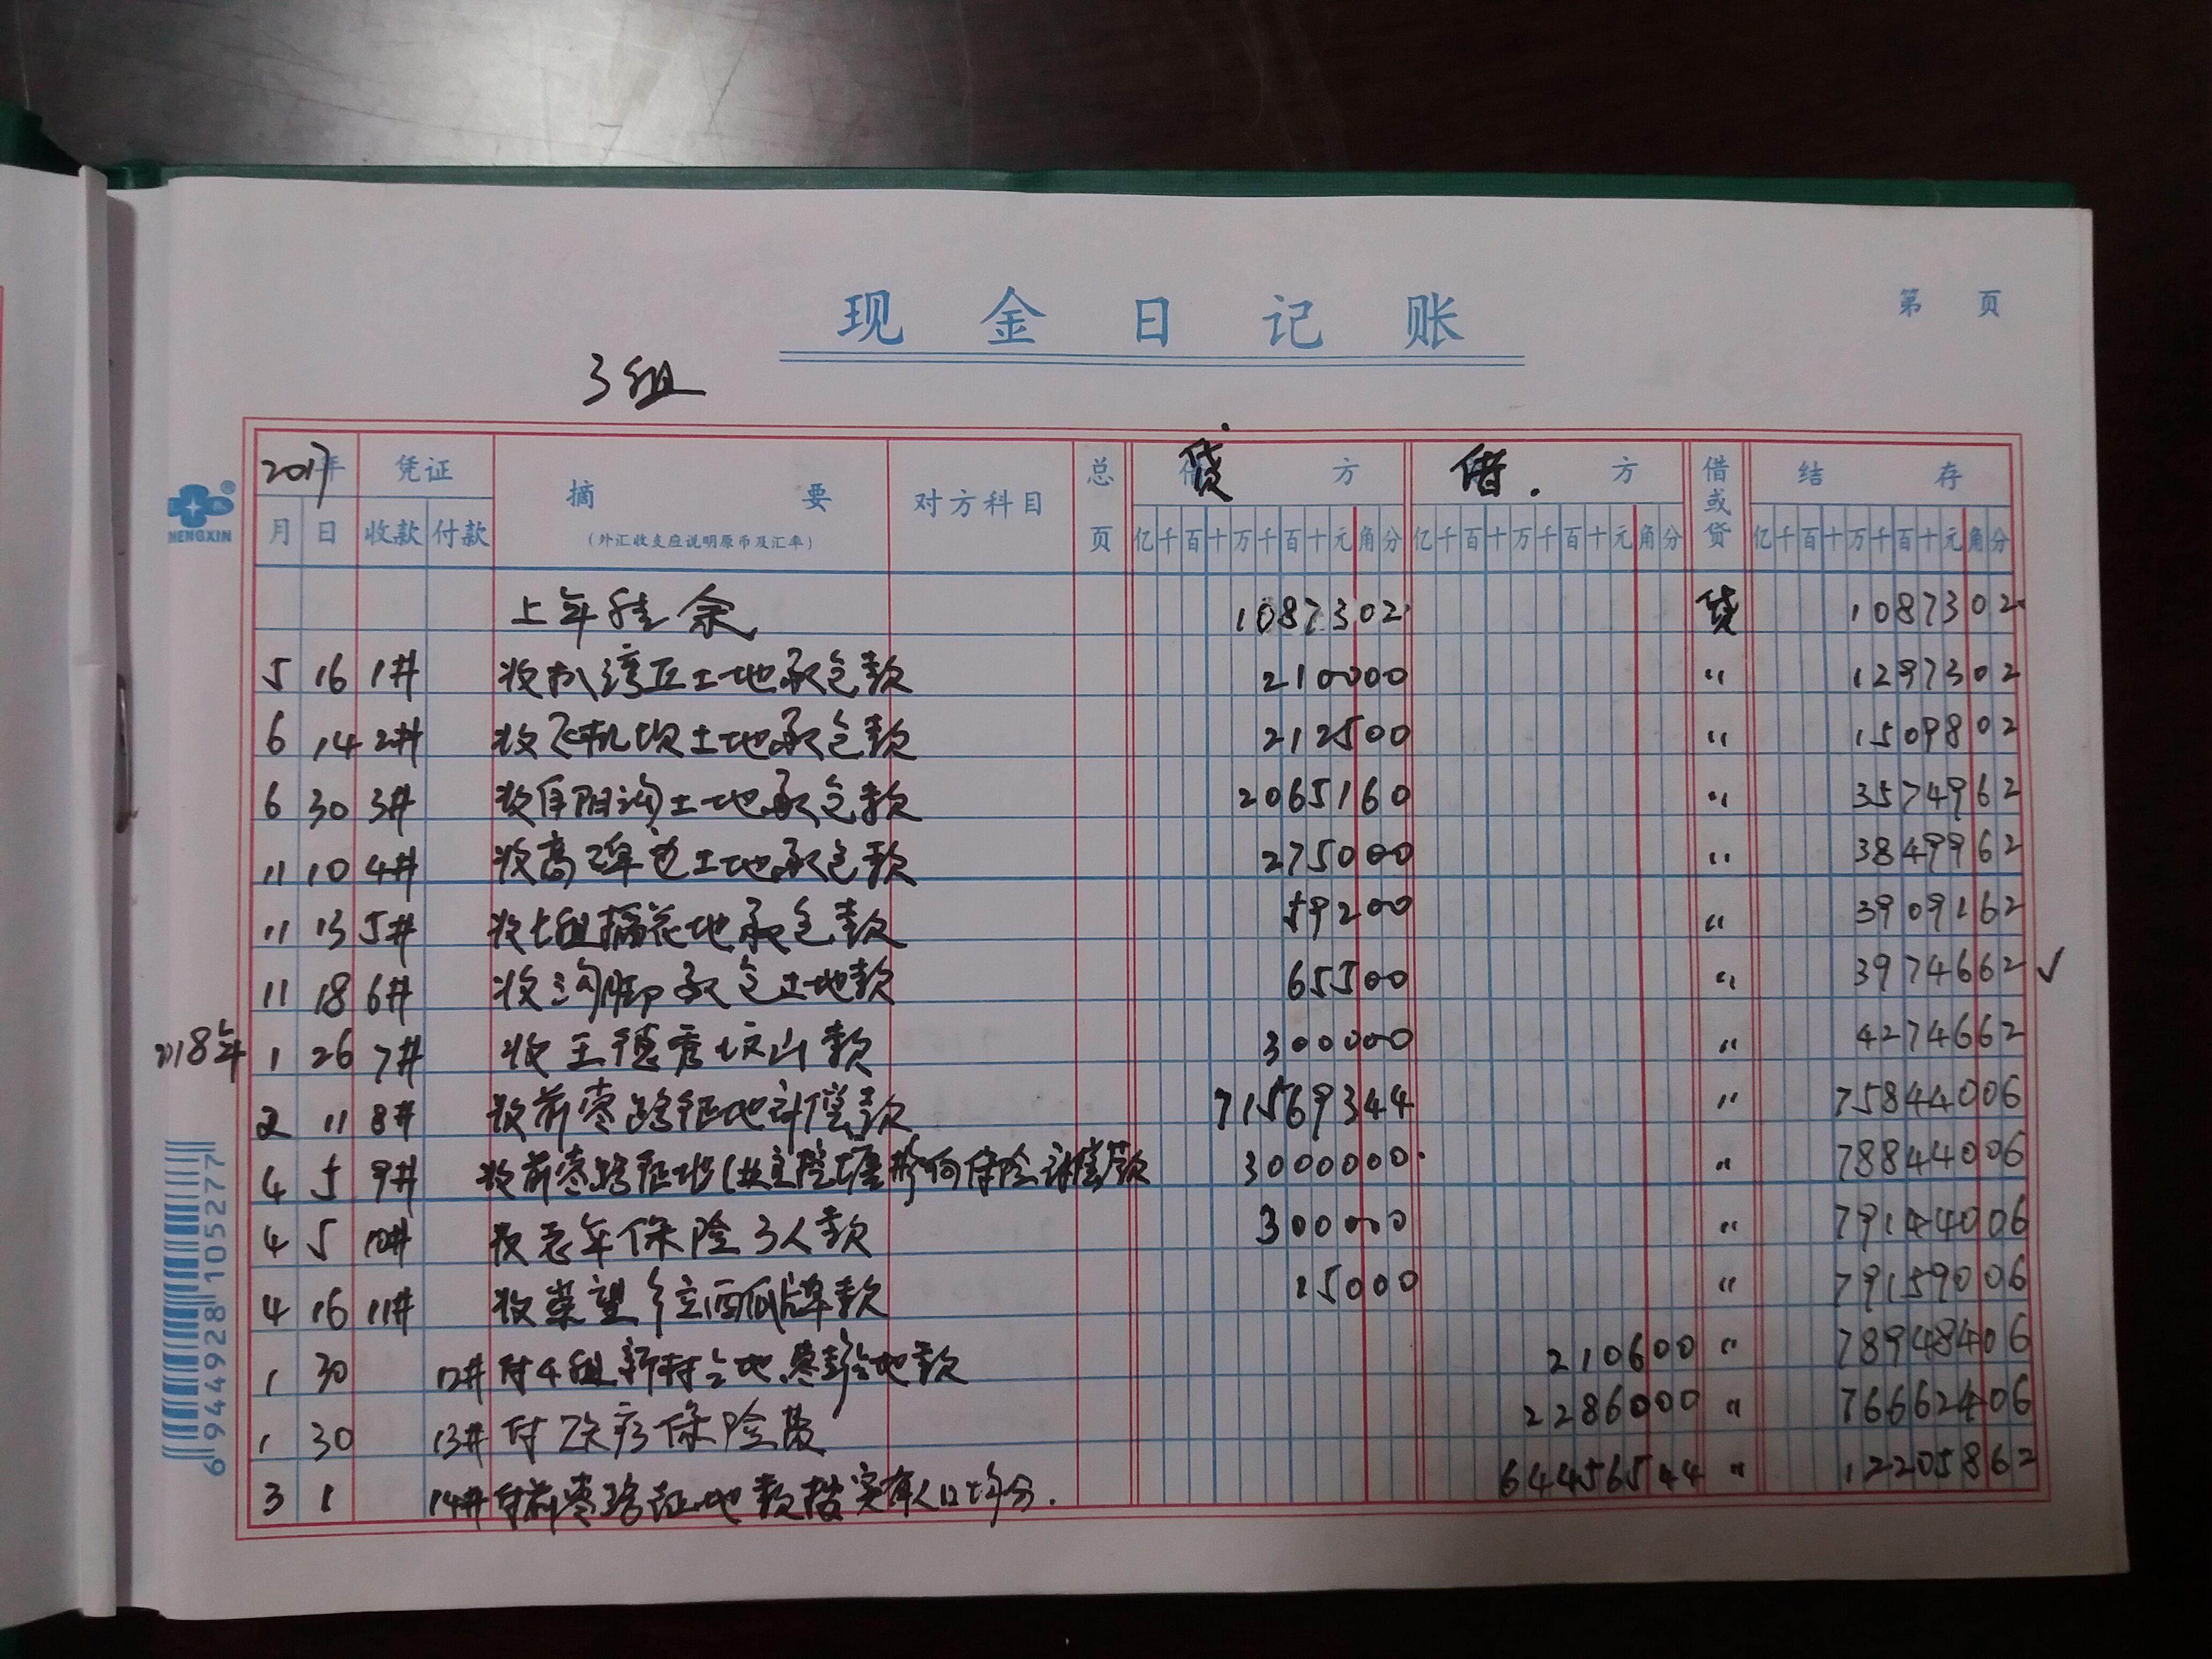 现金日记账
第 页
3组
2017年 凭证 摘要 对方科目 总页 贷方 借方 借或贷 结存
月 日 收款 付款 (外汇收支应说明原币及汇率) 亿千百十万千百十元角分 亿千百十万千百十元角分 亿千百十万千百十元角分
HENGXIN
上年结余 1087302 贷 1087302
5 16 1# 收扒湾丘土地承包款 210000 " 1297302
6 14 2# 收飞机坝土地承包款 212500 " 1509802
6 30 3# 收阳沟土地承包款 2065160 " 3574962
11 10 4# 收高碑边土地承包款 275000 " 3849962
11 13 5# 收七组棉花地承包款 59200 " 3909162
11 18 6# 收沟脚承包土地款 65500 " 3974662 ✓
2018年 1 26 7# 收王德秀坟山款 300000 " 4274662
2 11 8# 收前枣路征地补偿款 71569344 " 75844006
4 5 9# 收前枣路征地(保险补偿款 3000000 " 78844006
4 5 10# 收老年保险3人款 300000 " 79144006
4 16 11# 收荣望牌款 15000 " 79159006
1 30 12# 付4组新村占地枣地款 210600 " 78948406
1 30 13# 付医疗保险费 2286000 " 76662406
3 1 14# 付前枣路征地款按实有人口均分. 64456544 " 12205862
6944928105277